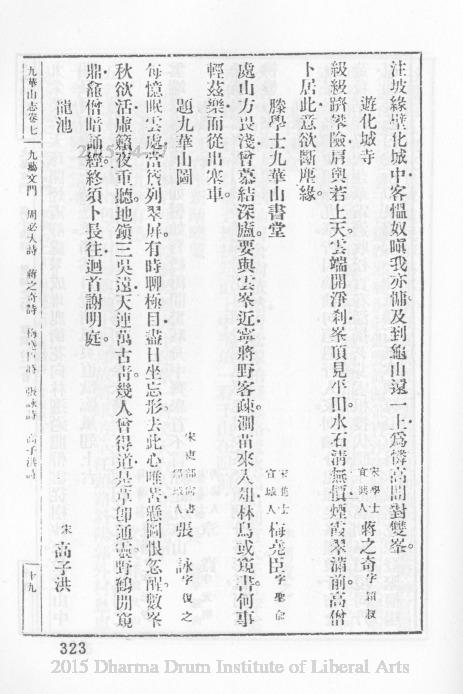 注坡緣壁化城中客慍奴瞋我亦慵及到龜山還一上為憐高閣對雙峯
遊化城寺
宋學士宜興人蔣之奇字穎叔
級級躋攀險肩輿若上天雲端開淨剎峯頂見平田水石清無價煙霞翠滿前高僧
卜居此意欲斷塵緣
滕學士九華山書堂
宋博士宣城人梅堯臣字聖俞
處山方畏淺曾慕結深廬要與雲峯近寧將野客疎澗苗來入俎林鳥或窺書何事
輕茲樂而從出宰車
題九華山圖
宋吏部尚書鄄城人張詠字復之
每憶眠雲處嘗答列翠屏有時聊極目盡日坐忘形去此心唯苦懸圖恨忽醒數峯
秋欲活虛籟夜重聽地鎮三吳遠天連萬古青幾人曾得道是草即通靈野鶴閒窺
鼎龕僧暗誦經終須卜長往迴首謝明庭
龍池
宋高子洪
九華山志卷七
九藝文門
周必大詩
蔣之奇詩
梅堯臣詩
張詠詩
高子洪詩
十九
323
2015 Dharma Drum Institute of Liberal Arts